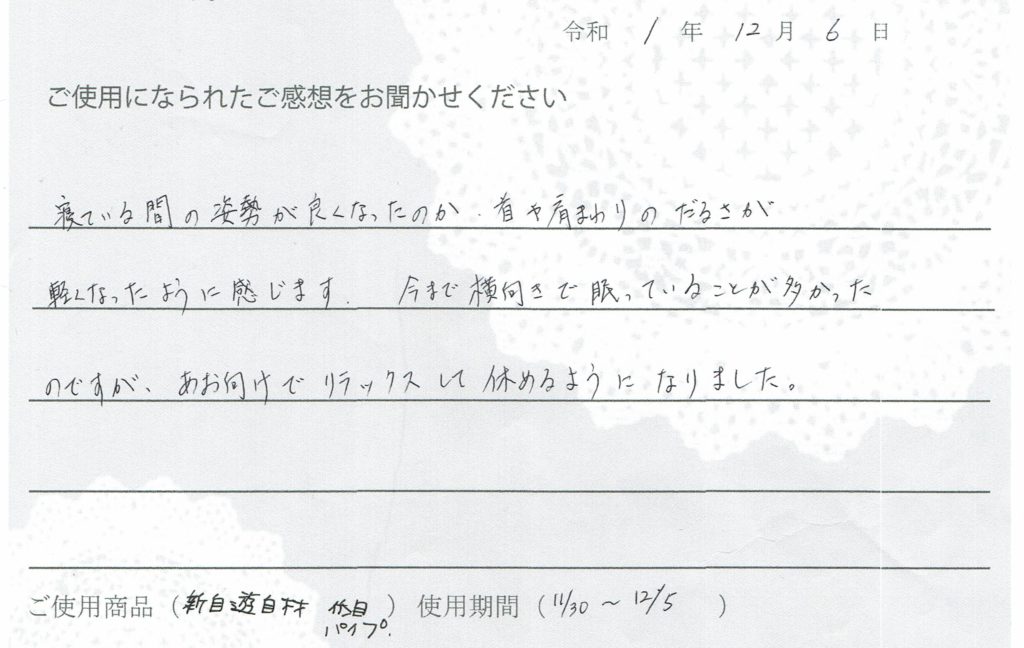 令和 1 年 12 月 6 日
ご使用になられたご感想をお聞かせください
寝ている間の姿勢が良くなったのか、首や肩まわりのだるさが
軽くなったように感じます. 今まで横向きで眠っていることが多かった
のですが、あお向けでリラックスして休めるようになりました。
ご使用商品（新自遊自材 パイプ.）使用期間（11/30 ～ 12/5 ）